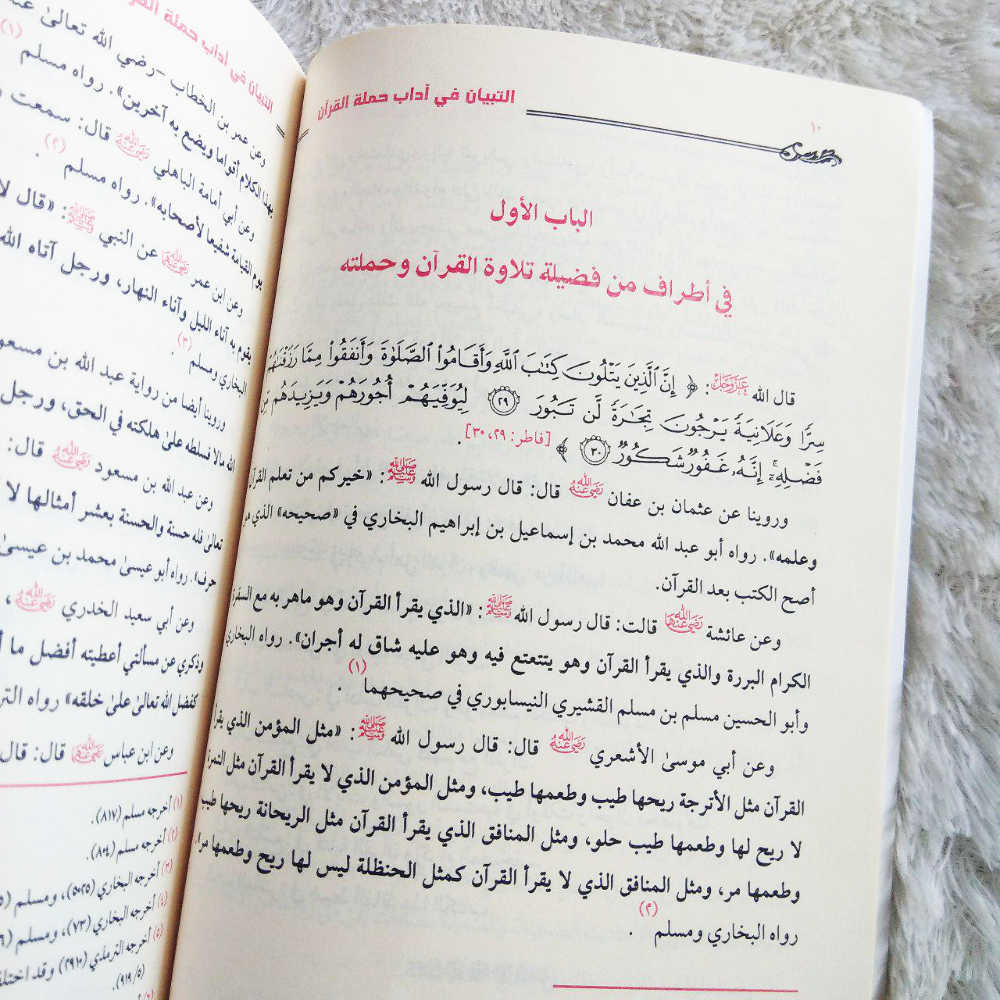 التبيان في آداب حملة القرآن
١٠
الباب الأول
في أطراف من فضيلة تلاوة القرآن وحملته
قال الله عَزَّوَجَلَّ: ﴿ إِنَّ ٱلَّذِينَ يَتْلُونَ كِتَٰبَ ٱللَّهِ وَأَقَامُوا۟ ٱلصَّلَوٰةَ وَأَنفَقُوا۟ مِمَّا رَزَقْنَٰهُمْ
سِرًّا وَعَلَانِيَةً يَرْجُونَ تِجَٰرَةً لَّن تَبُورَ ٢٩ لِيُوَفِّيَهُمْ أُجُورَهُمْ وَيَزِيدَهُم مِّن
فَضْلِهِۦٓ إِنَّهُۥ غَفُورٌ شَكُورٌ ٣٠ ﴾ [فاطر: ٢٩، ٣٠].
وروينا عن عثمان بن عفان رَضِيَ اللَّهُ عَنْهُ قال: قال رسول الله ﷺ: «خيركم من تعلم القرآن
وعلمه». رواه أبو عبد الله محمد بن إسماعيل بن إبراهيم البخاري في «صحيحه» الذي هو
أصح الكتب بعد القرآن.
وعن عائشة رَضِيَ اللَّهُ عَنْهَا قالت: قال رسول الله ﷺ: «الذي يقرأ القرآن وهو ماهر به مع السفرة
الكرام البررة والذي يقرأ القرآن وهو يتتعتع فيه وهو عليه شاق له أجران». رواه البخاري
وأبو الحسين مسلم بن مسلم القشيري النيسابوري في صحيحهما (١).
وعن أبي موسىٰ الأشعري رَضِيَ اللَّهُ عَنْهُ قال: قال رسول الله ﷺ: «مثل المؤمن الذي يقرأ
القرآن مثل الأترجة ريحها طيب وطعمها طيب، ومثل المؤمن الذي لا يقرأ القرآن مثل التمرة
لا ريح لها وطعمها طيب حلو، ومثل المنافق الذي يقرأ القرآن مثل الريحانة ريحها طيب
وطعمها مر، ومثل المنافق الذي لا يقرأ القرآن كمثل الحنظلة ليس لها ريح وطعمها مر».
رواه البخاري ومسلم (٢).
التبيان في آداب حملة
وعن عمر بن الخطاب -رضي الله تعالىٰ عنه
بهذا الكلام أقواما ويضع به آخرين». رواه مسلم (١)
وعن أبي أمامة الباهلي رَضِيَ اللَّهُ عَنْهُ قال: سمعت
يوم القيامة شفيعا لأصحابه». رواه مسلم (٢).
وعن ابن عمر رَضِيَ اللَّهُ عَنْهُ عن النبي ﷺ: «قال لا
يقوم به آناء الليل وآناء النهار، ورجل آتاه الله
البخاري ومسلم (٣).
وروينا أيضا من رواية عبد الله بن مسعود
الله مالا فسلطه علىٰ هلكته في الحق، ورجل
وعن عبد الله بن مسعود رَضِيَ اللَّهُ عَنْهُ قال:
تعالىٰ فله حسنة والحسنة بعشر أمثالها لا
حرف». رواه أبو عيسىٰ محمد بن عيسىٰ
وعن أبي سعيد الخدري رَضِيَ اللَّهُ عَنْهُ،
وذكري عن مسألتي أعطيته أفضل ما
كفضل الله تعالىٰ علىٰ خلقه» رواه
وعن ابن عباس رَضِيَ اللَّهُ عَنْهُ قال: قال
(١) أخرجه مسلم (٨١٧).
(٢) أخرجه مسلم (٨٠٤).
(٣) أخرجه البخاري (٥٠٢٥)، ومسلم
(٤) أخرجه البخاري (٧٣)، ومسلم
(٥) أخرجه الترمذي (٢٩١٠) وقد
(٩١٩/٥).